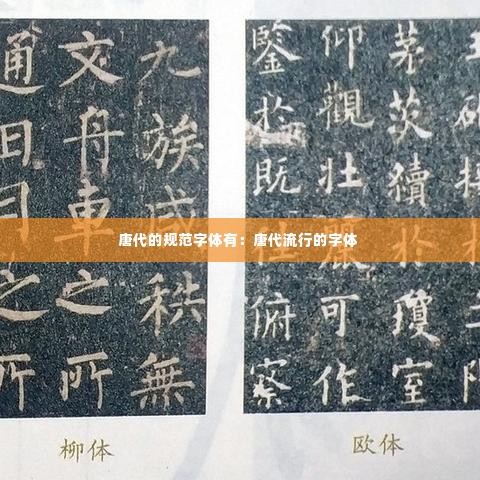 九族咸秩無
文舟車之所
通日月之所
茅茨續於瓊室
仰觀壯麗可作
鑒於既往俯察
唐代的规范字体有：唐代流行的字体
柳体
欧体